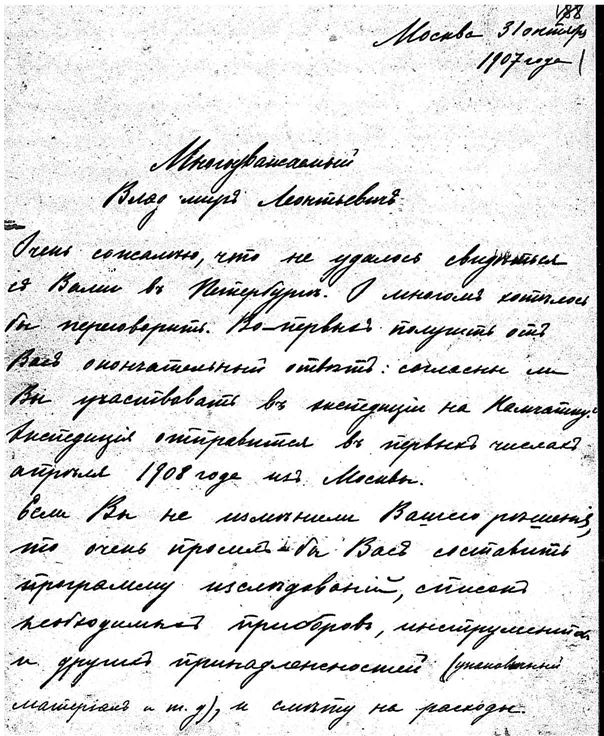 188
Москва 31 октября
1907 года
Многоуважаемый
Владимиръ Леонтьевичъ
Очень сожалѣю, что не удалось свидѣться
съ Вами въ Петербургѣ. О многомъ хотѣлось
бы переговорить. Во-первыхъ получить отъ
Васъ окончательный отвѣтъ: согласны ли
Вы участвовать въ экспедиціи на Камчатку?
Экспедиція отправится въ первыхъ числахъ
апрѣля 1908 года изъ Москвы.
Если Вы не измѣнили Вашего рѣшенія,
то очень просилъ-бы Васъ составить
программу изслѣдованій, списокъ
необходимыхъ приборовъ, инструментовъ
и другихъ принадлежностей (упаковочный
матеріалъ и т.д), и смѣту на расходы.